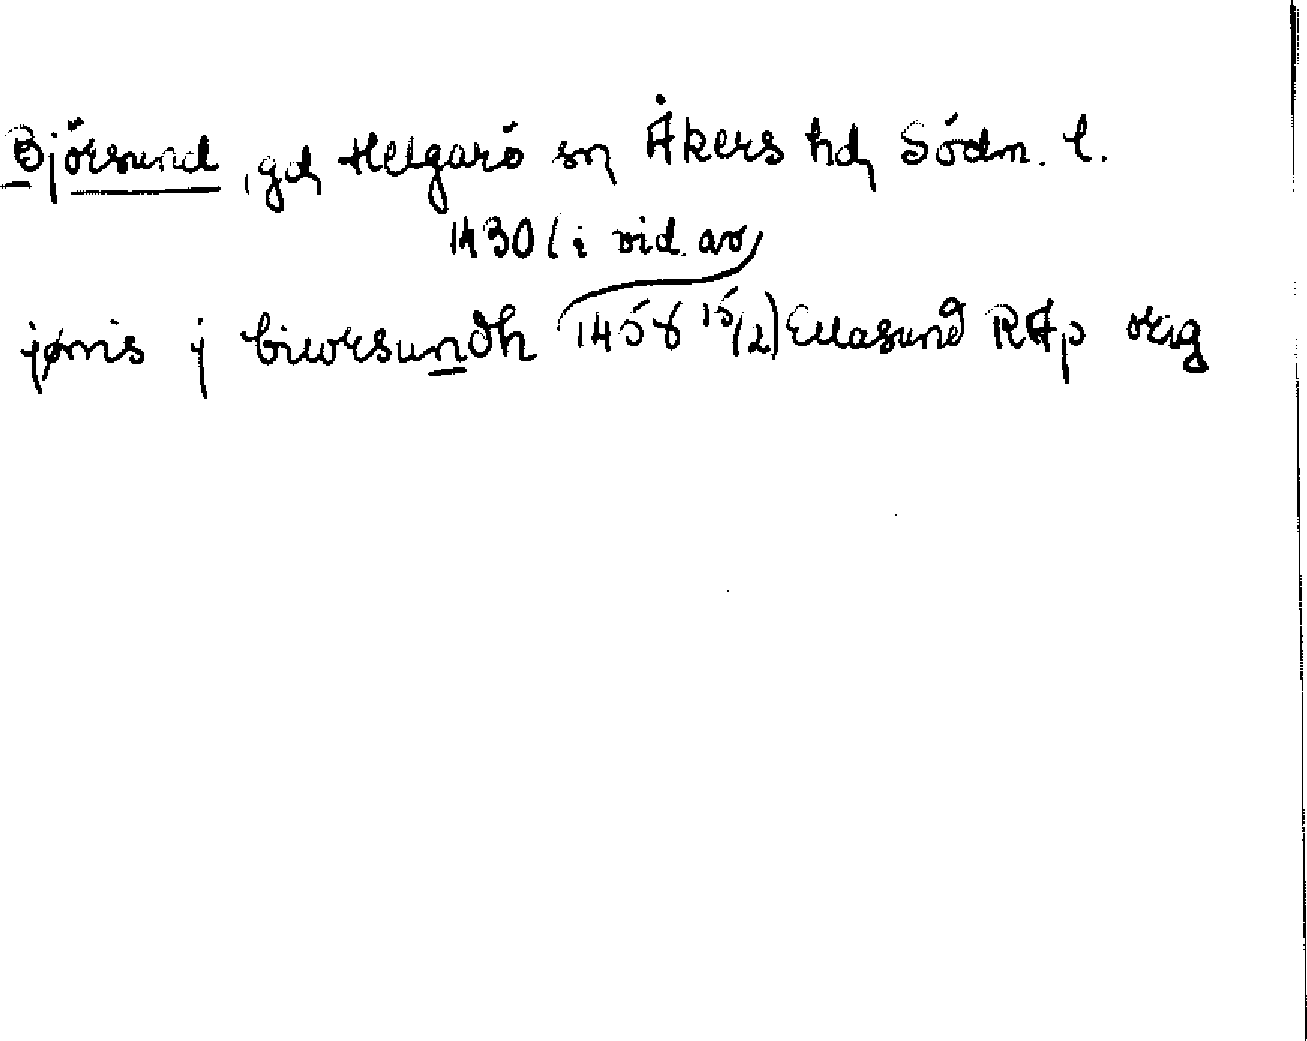 Björsund, gd Helgarö sn Åkers hd Södm. l.
1430 (i vid. av
jønis j biworsundh 1458 15/2) Ellasund RAp orig